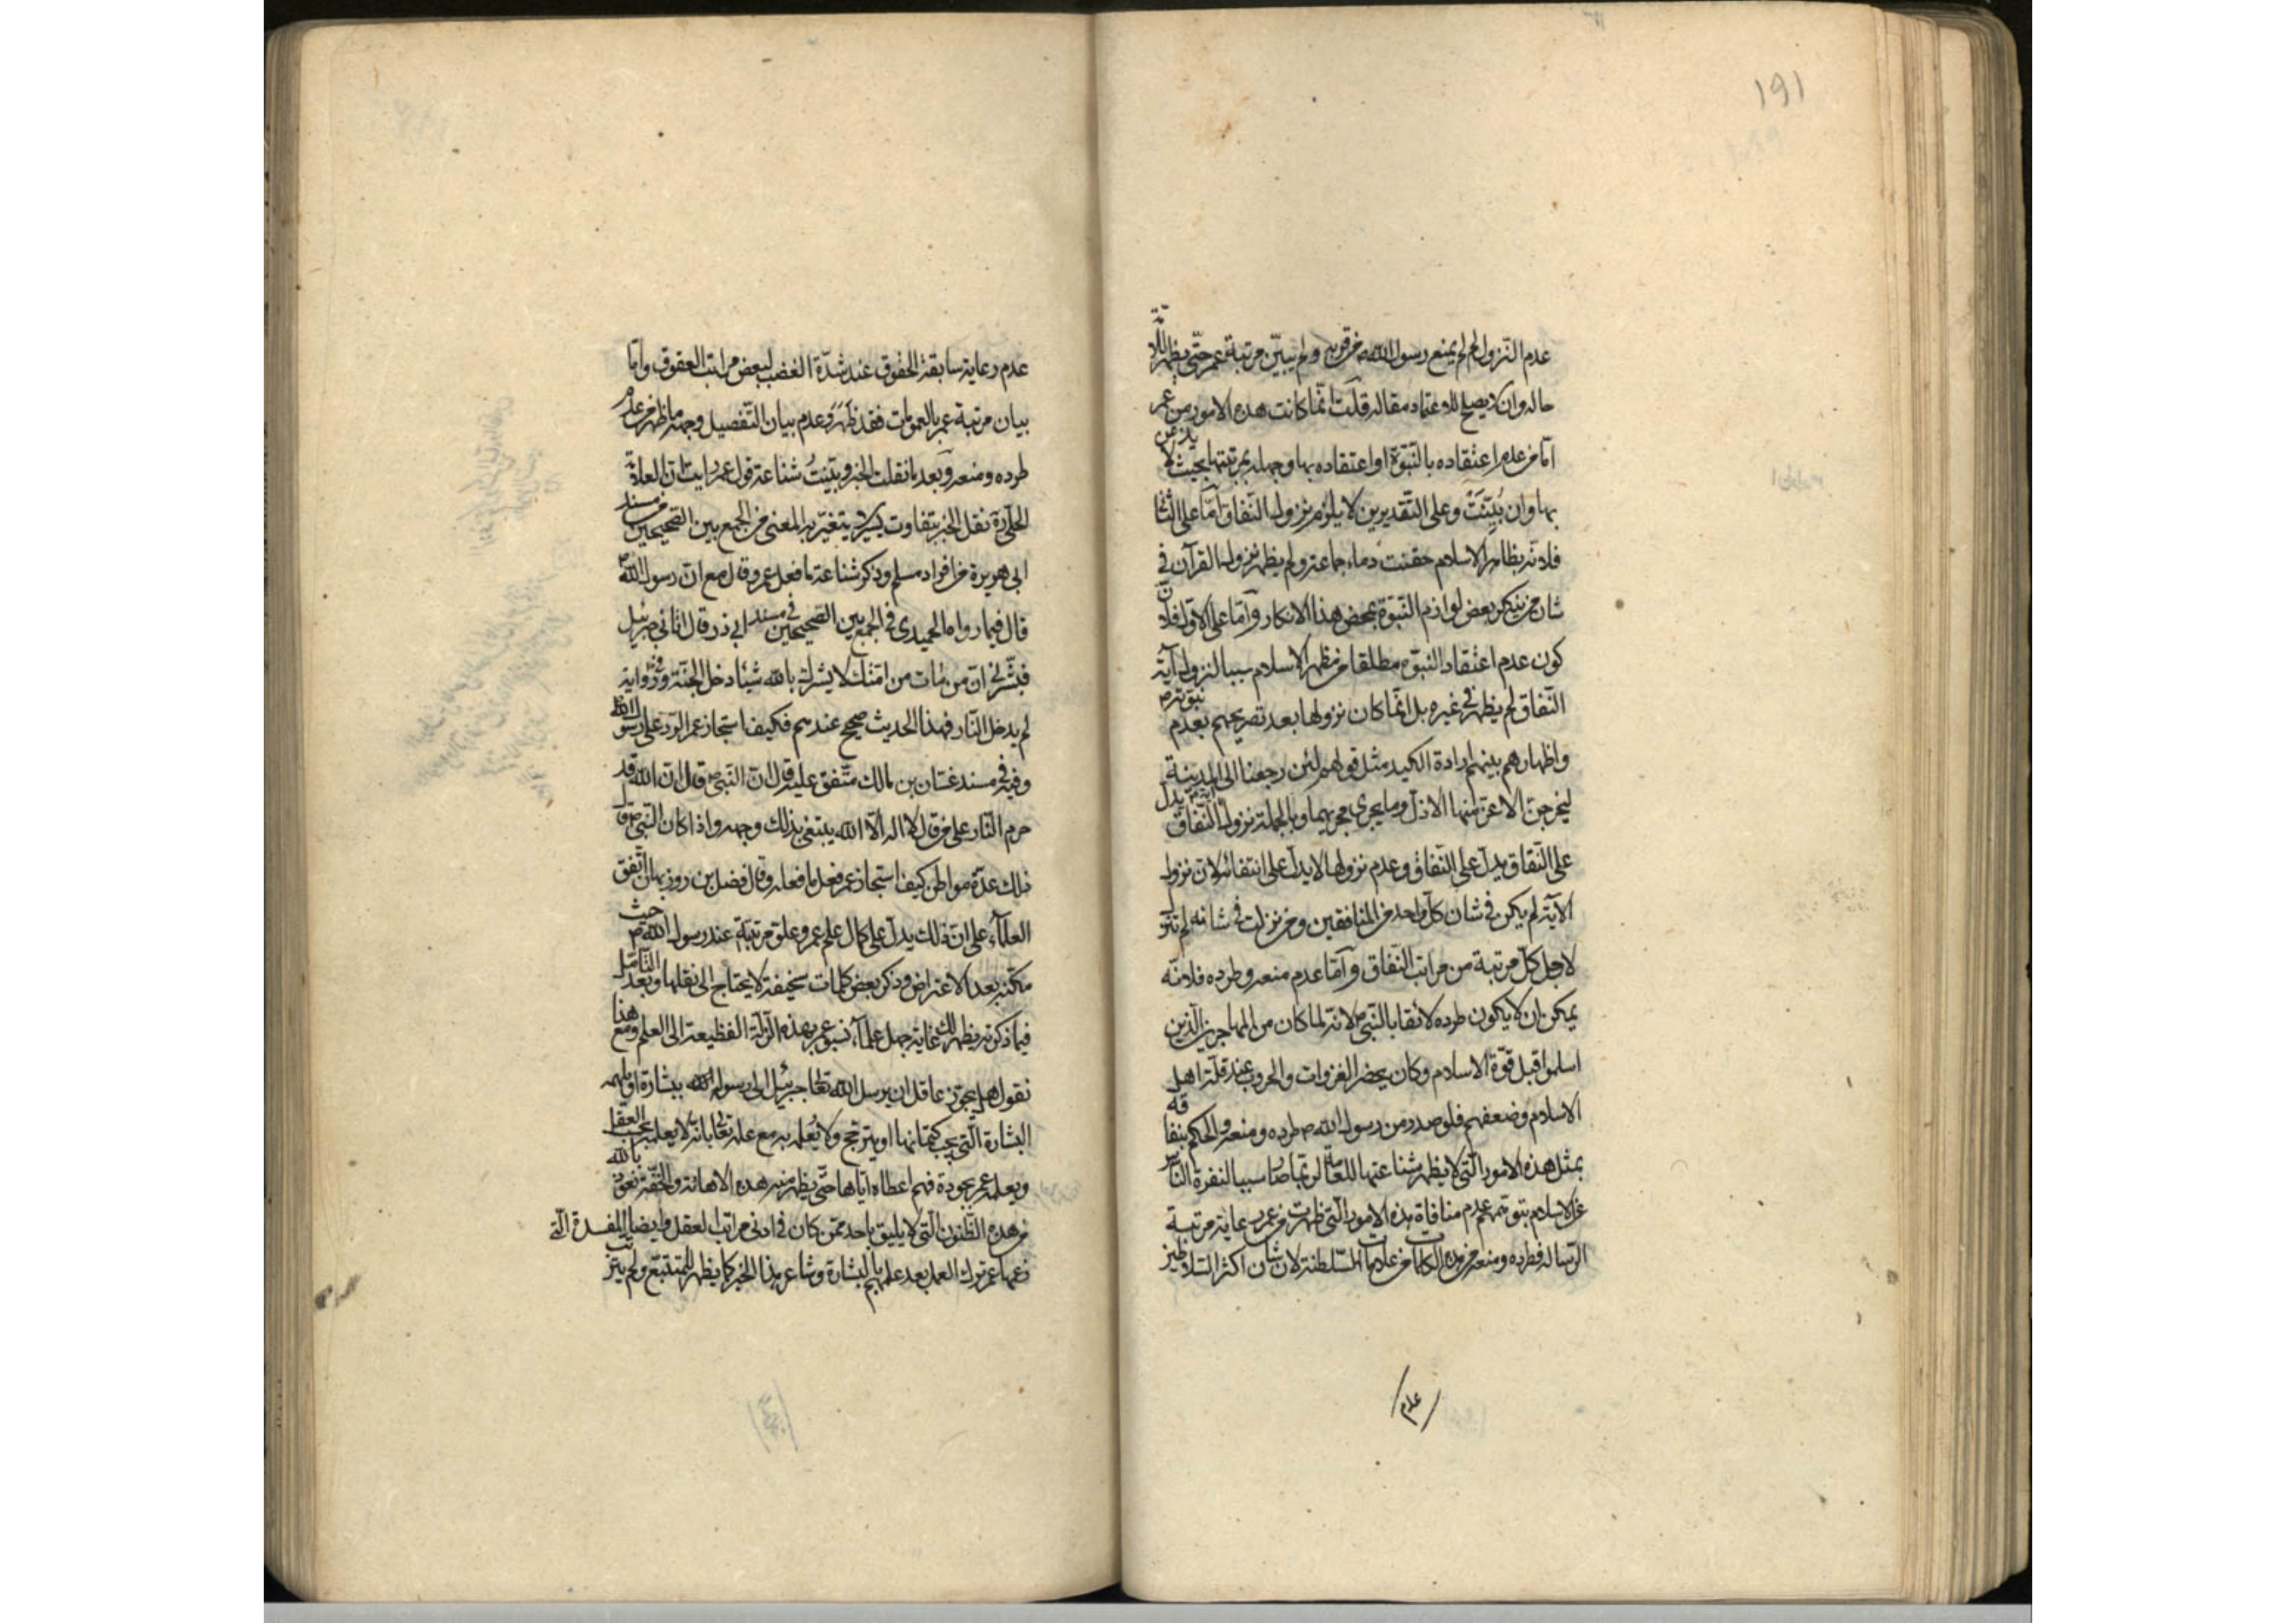 ١٩١
عدم النزول لم لم يمنع رسول الله ص من قربه ولم يبيّن مرتبة عمر حتى يظهر للامّة
حاله وان لا يصلح للاعتماد مقاله قلت انّما كانت هذه الامور من عمر
امّا من عدم اعتقاده بالنبوّة او اعتقاده بها وجهله بمرتبتها بحيث لا يذعن
بها وان بُيّنَتْ وعلى التقديرين لا يلزم نزول النفاق امّا على الثا
فلانّه بظاهر الاسلام حقنت دماء جماعة ولم يظهر نزول القرآن في
شان من ينكر بعض لوازم النبوّة بمحض هذا الانكار وامّا على الاوّل فلانّ
كون عدم اعتقاد النبوّة مطلقا من مظهر الاسلام سببا لنزول آية
النفاق لم يظهر في غيره بل انّما كان نزولها بعد تصريحهم بعدم نبوّته ص
واظهارهم بينهم ارادة الكيد مثل قولهم لئن رجعنا الى المدينة
ليخرجنّ الاعزّ منها الاذلّ وما يجري مجريهما وبالجملة نزول آية النفاق يدل
على النفاق يدلّ على النفاق وعدم نزولها لا يدلّ على انتفائه لانّ نزول
الآية لم يكن في شان كلّ واحد من المنافقين ومن نزلت في شانه لم تنزل
لاجل كلّ مرتبة من مراتب النفاق وامّا عدم منعه وطرده فلانّه
يمكن ان لا يكون طرده لائقا بالنبي ص لانّه لما كان من المهاجرين الذين
اسلموا قبل قوّة الاسلام وكان يحضر الغزوات والحروب عند قلّة اهل
الاسلام وضعفهم فلو صدر من رسول الله ص طرده ومنعه والحكم بنفاقه
بمثل هذه الامور التي لا يظهر شناعتها للعامّة لربما صار سببا لنفرة الناس
عن الاسلام بتوهّمهم عدم منافاة هذه الامور التي ظهرت من عمر رعاية مرتبة
الرسالة فطرده ومنعه من هذه الكلمات من علامات السلطنة لان شان اكثر السلاطين
عدم
عدم رعاية سابقة الحقوق عند شدّة الغضب لبعض مراتب العقوق وامّا
بيان مرتبة عمر بالعمومات فقد ظَهَرَ وعدم بيان التفصيل وجهه ما ظهر من عدم
طرده ومنعه وبعد ما نقلت الخبر وبيّنتُ شناعة قول عمر رايت انّ العلامة
الحلّي ره نقل الخبر بتفاوت يسير لا يتغيّر به المعنى من الجمع بين الصحيحين من مسند
ابي هريرة من افراد مسلم وذكر شناعة ما فعل عمر وقال مع انّ رسول الله ص
قال فيما رواه الحميدي في الجمع بين الصحيحين في مسند ابي ذر قال اتاني جبرئيل
فبشّرني انّ من مات من امّتك لا يشرك بالله شيئا دخل الجنّة وفي رواية
لم يدخل النار فهذا الحديث صحيح عندهم فكيف استجاز عمر الردّ على رسول الله
وفيه في مسند غسّان بن مالك متّفق عليه قال انّ النبي ص قال انّ الله قد
حرم النار على من قال لا اله الّا الله يبتغي بذلك وجهه واذا كان النبي ص قال
ذلك عدّة مواطن كيف استجاز عمر فعل ما فعله وقال فضل بن روزبهان اتّفق
العلماء على انّ ذلك يدلّ على كمال علم عمر وعلوّ مرتبته عند رسول الله ص حيث
مكّنه بعد الاعتراض وذكر بعض كلمات سخيفة لا يحتاج الى نقلها وبعد التأمّل
فيما ذكرته يظهر لك غاية جهل علماء نسبوا عمر بهذه الزلّة الفظيعة الى العلم ومع هذا
نقول هل يجوّز عاقل ان يرسل الله تعالى جبرئيل الى رسول الله ببشارة او يلهمه
البشارة التي يجب كتمانها او يترجّح ولا يُعلمه به مع علمه تعالى بانّه لا يعلمه بحسب العقل
ويعلمه عمر بجودة فهم اعطاه ايّاها حتّى يظهر منه هذه الاهانة والخفّة نعوذ بالله
من هذه الظنون التي لا يليق باحد ممّن كان في ادنى مراتب العقل وايضا المفسدة التي
زعمها عمر ترك العمل بعد علمهم بالبشارة وشاع هذا الخبر كما يظهر للمتتبّع ولم يترتّب